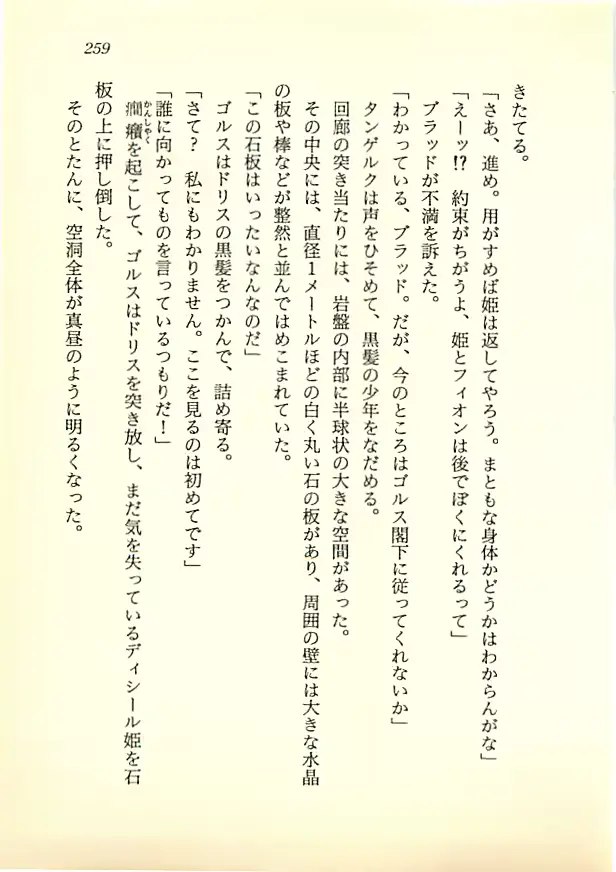 259
きたてる。
「さあ、進め。用がすめば姫は返してやろう。まともな身体かどうかはわからんがな」
「えーッ!? 約束がちがうよ、姫とフィオンは後でぼくにくれるって」
ブラッドが不満を訴えた。
「わかっている、ブラッド。だが、今のところはゴルス閣下に従ってくれないか」
タンゲルクは声をひそめて、黒髪の少年をなだめる。
回廊の突き当たりには、岩盤の内部に半球状の大きな空間があった。
その中央には、直径1メートルほどの白く丸い石の板があり、周囲の壁には大きな水晶
の板や棒などが整然と並んではめこまれていた。
「この石板はいったいなんなのだ」
ゴルスはドリスの黒髪をつかんで、詰め寄る。
「さて? 私にもわかりません。ここを見るのは初めてです」
「誰に向かってものを言っているつもりだ!」
癇癪を起こして、ゴルスはドリスを突き放し、まだ気を失っているディシール姫を石
かんしゃく
板の上に押し倒した。
そのとたんに、空洞全体が真昼のように明るくなった。